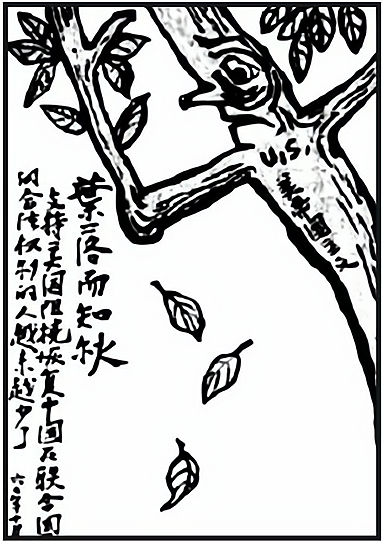 U.S.
美帝国主义
葉落而知秋
支持美国阻撓恢复中国在联合国
的合法权利的人越来越少了
六〇年十月